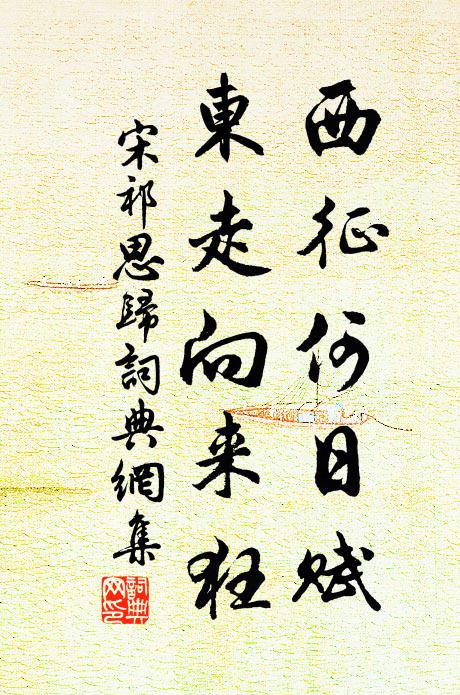 西征何日赋
東走向来狂
宋祁思歸詞典網集
詞典網印